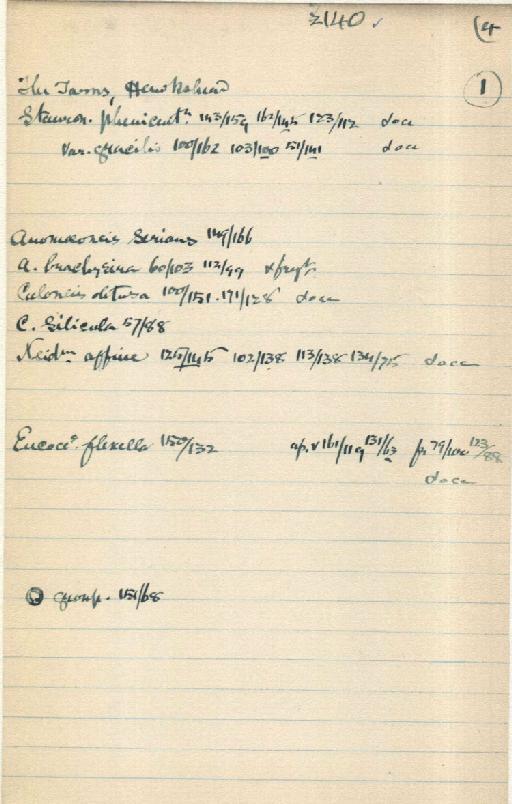 2140 ✓ (4
1
The Tarns, Hawkshead
Stauron. phoenicentn 143/159 162/145 123/112 occn
Var. gracilis 100/162 103/100 151/141 occn
Anomoeoneis serians 149/166
A. brachysira 60/103 112/99 v freqt.
Caloneis obtusa 100/151 . 171/128 occn
C. Silicula 57/88
Neidm affine 125/145 102/138 113/138 134/75 occn
Eucocs flexella 150/132 ap. v 161/119 131/63 fr 79/100 123/88
occn
group. 151/68